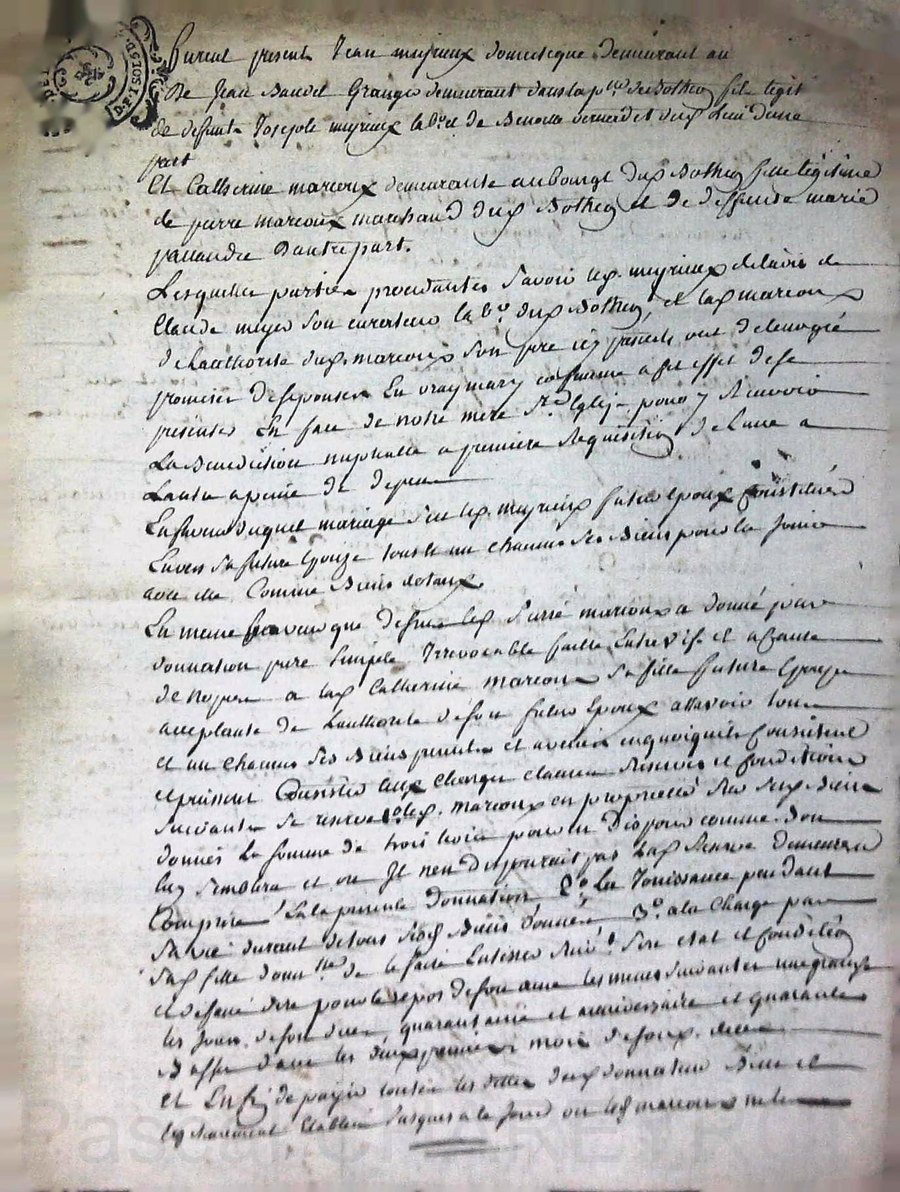 furent presents Jean meyrieux domestique demeurant au
De Jean Granger demeurant dans la p.sse de Bothen fils legit
de defunt Joseph meyrieux lab.r et de Benoite dud. lieu d'une
part
Et Catherine marcoux demeurante au bourg dud Bothen fille légitime
de pierre marcoux marchand dud Bothen et de deffunte marie
D'autre part.
Lesquelles parties procedantes savoir led. meyrieux de lavis de
Claude son curateur lab.r dud Bothen, et lad marcoux
de lauthorité dud. marcoux son pere icy present ont de leur gré
promis de sepouser En vray mary et femme a cet effet de se
presenter En face de notre mere S.te Eglise pour y Recevoir
La Benediction nuptialle a premiere Requisition de lune a
Lautre a peine de depens
En faveur duquel mariage s'est led. meyrieux futur epoux Constitué
Envers sa future Epouze tous et un chacuns ses Biens pour en Jouir
avec elle Comme Biens dotaux.
En meme faveur que dessus led pierre marcoux a donné par
donnation pure simple Irrevocable faitte Entre vifs et a cause
de Nopces a lad Catherine marcoux sa fille future Epouze
acceptante de Lauthorité de son futur Epoux assavoir tous
et un chacuns ses Biens presents et avenir en quoiquils Consistent
et puissent Consister aux charges clauses Reserves et Conditions
suivantes se reserve 1.o led. marcoux en proprieté sur susd. Biens
donnés La somme de trois livres pour en Disposer comme bon
luy semblera et ou Il n'en disposerait pas lad Reserve demeurera
Comprise En la presente donnation 2.o La Jouissance pendant
sa vie durant de tous sesd Biens donnés 3.o a la charge par
sad fille de le faire Enterrer suiv.t son etat et Condition
et de faire dire pour le repos de son ame les messes suivantes une grande
les Jours de son deces quarantaine et anniversaire et quarante
Basses dans les premiers mois de sond. deces
et Enfin de payer toutes les dettes dud donnateur Bien et
Jusques a le Jour ou led marcoux
Pascal